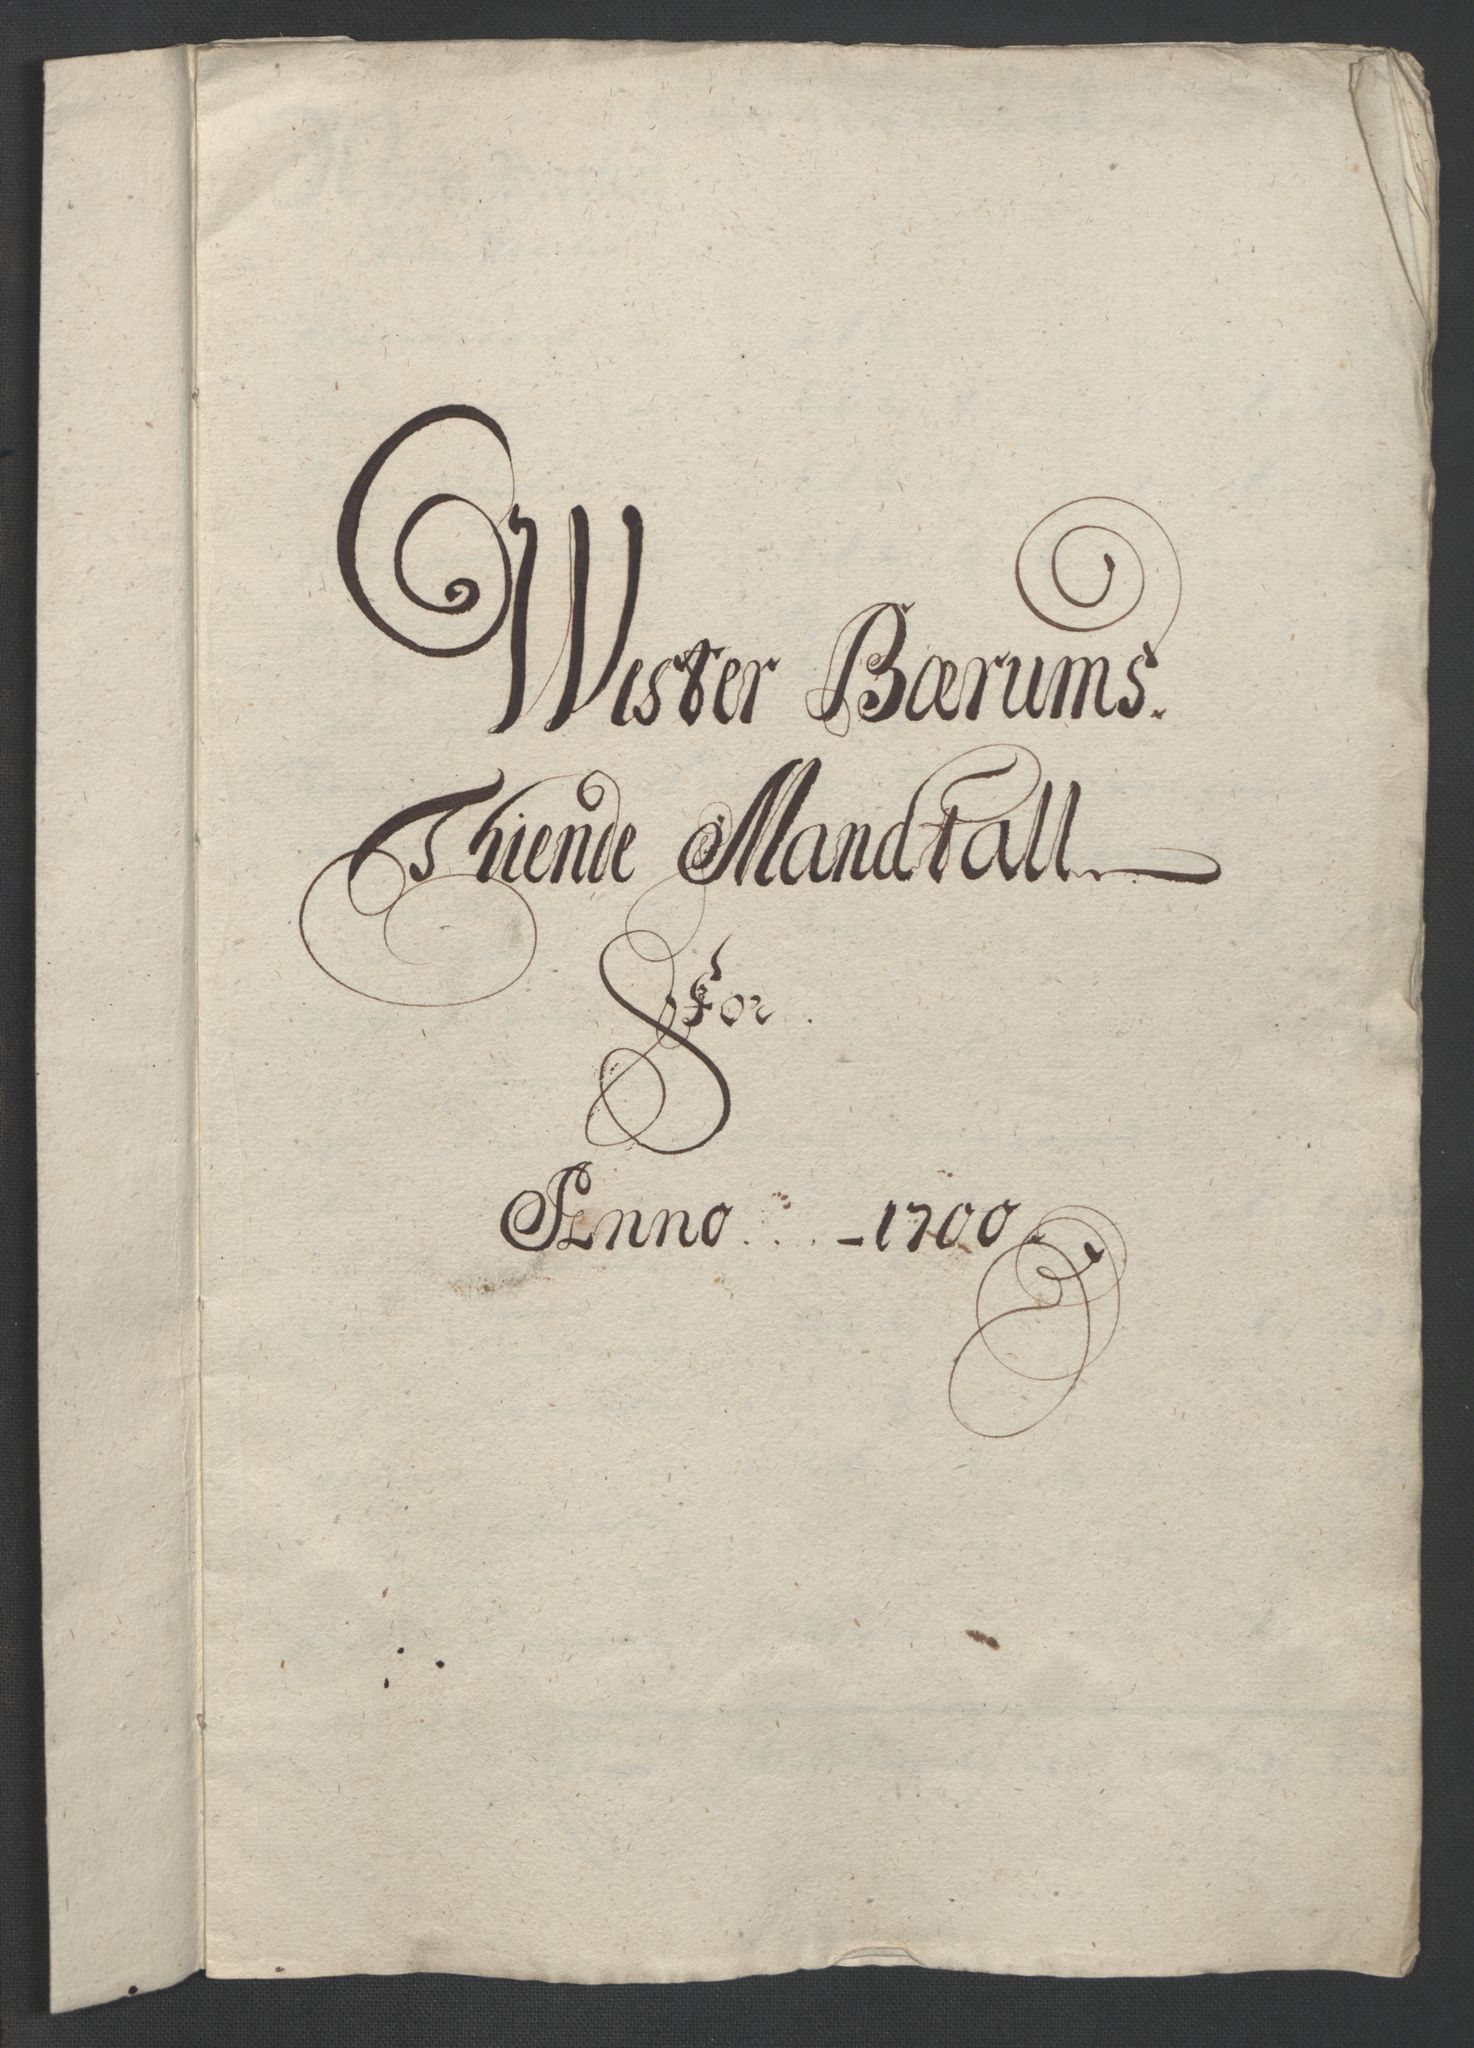 Wester Bærums.
Thiende Mandtall
For
Anno ... - 1700